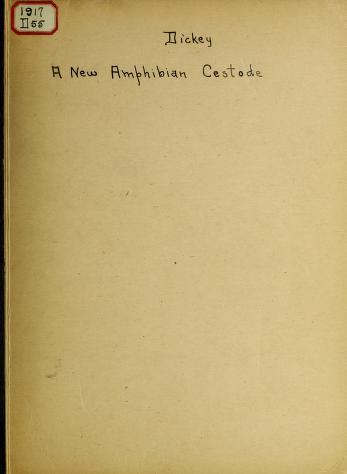 1917
D55
Dickey
A New Amphibian Cestode